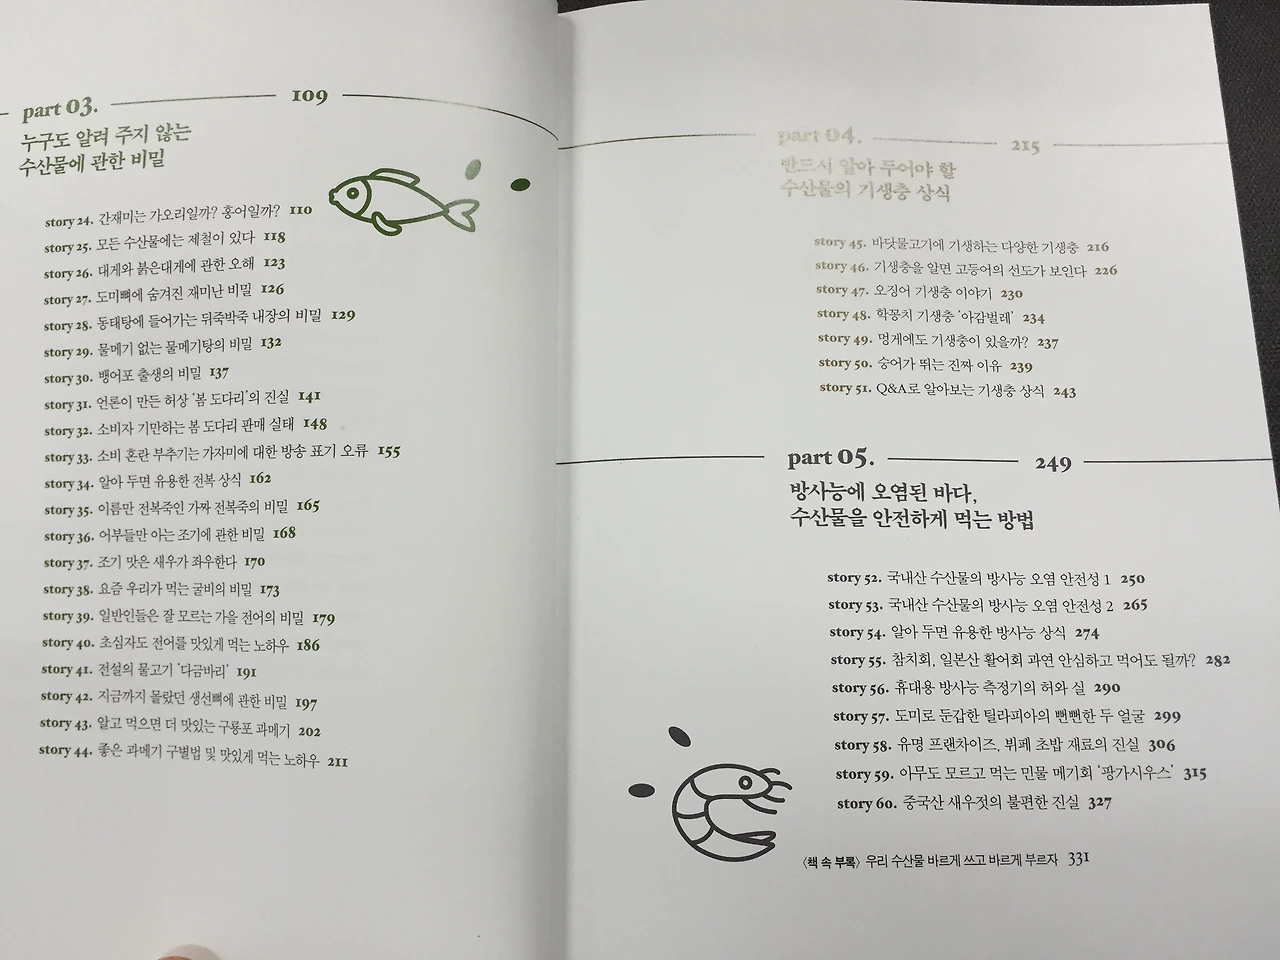 part 03. 109
누구도 알려 주지 않는
수산물에 관한 비밀
story 24. 간재미는 가오리일까? 홍어일까? 110
story 25. 모든 수산물에는 제철이 있다 118
story 26. 대게와 붉은대게에 관한 오해 123
story 27. 도미뼈에 숨겨진 재미난 비밀 126
story 28. 동태탕에 들어가는 뒤죽박죽 내장의 비밀 129
story 29. 물메기 없는 물메기탕의 비밀 132
story 30. 뱅어포 출생의 비밀 137
story 31. 언론이 만든 허상 ‘봄 도다리’의 진실 141
story 32. 소비자 기만하는 봄 도다리 판매 실태 148
story 33. 소비 혼란 부추기는 가자미에 대한 방송 표기 오류 155
story 34. 알아 두면 유용한 전복 상식 162
story 35. 이름만 전복죽인 가짜 전복죽의 비밀 165
story 36. 어부들만 아는 조기에 관한 비밀 168
story 37. 조기 맛은 새우가 좌우한다 170
story 38. 요즘 우리가 먹는 굴비의 비밀 173
story 39. 일반인들은 잘 모르는 가을 전어의 비밀 179
story 40. 초심자도 전어를 맛있게 먹는 노하우 186
story 41. 전설의 물고기 ‘다금바리’ 191
story 42. 지금까지 몰랐던 생선뼈에 관한 비밀 197
story 43. 알고 먹으면 더 맛있는 구룡포 과메기 202
story 44. 좋은 과메기 구별법 및 맛있게 먹는 노하우 211
part 04. 215
반드시 알아 두어야 할
수산물의 기생충 상식
story 45. 바닷물고기에 기생하는 다양한 기생충 216
story 46. 기생충을 알면 고등어의 선도가 보인다 226
story 47. 오징어 기생충 이야기 230
story 48. 학꽁치 기생충 ‘아감벌레’ 234
story 49. 멍게에도 기생충이 있을까? 237
story 50. 숭어가 뛰는 진짜 이유 239
story 51. Q&A로 알아보는 기생충 상식 243
part 05. 249
방사능에 오염된 바다,
수산물을 안전하게 먹는 방법
story 52. 국내산 수산물의 방사능 오염 안전성 1 250
story 53. 국내산 수산물의 방사능 오염 안전성 2 265
story 54. 알아 두면 유용한 방사능 상식 274
story 55. 참치회, 일본산 활어회 과연 안심하고 먹어도 될까? 282
story 56. 휴대용 방사능 측정기의 허와 실 290
story 57. 도미로 둔갑한 틸라피아의 뻔뻔한 두 얼굴 299
story 58. 유명 프랜차이즈, 뷔페 초밥 재료의 진실 306
story 59. 아무도 모르고 먹는 민물 메기회 ‘팡가시우스’ 315
story 60. 중국산 새우젓의 불편한 진실 327
〈책 속 부록〉 우리 수산물 바르게 쓰고 바르게 부르자 331